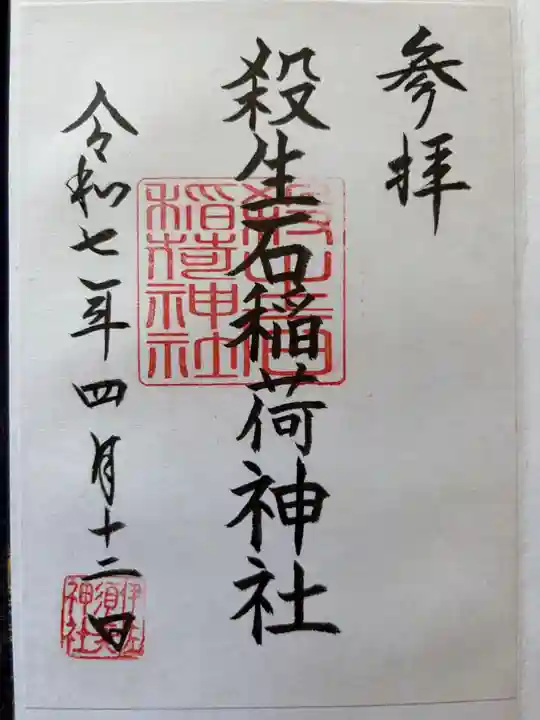 参拝
殺生石稲荷神社
殺生石
稲荷神社
令和七年四月十二日
伊佐
須美
神社